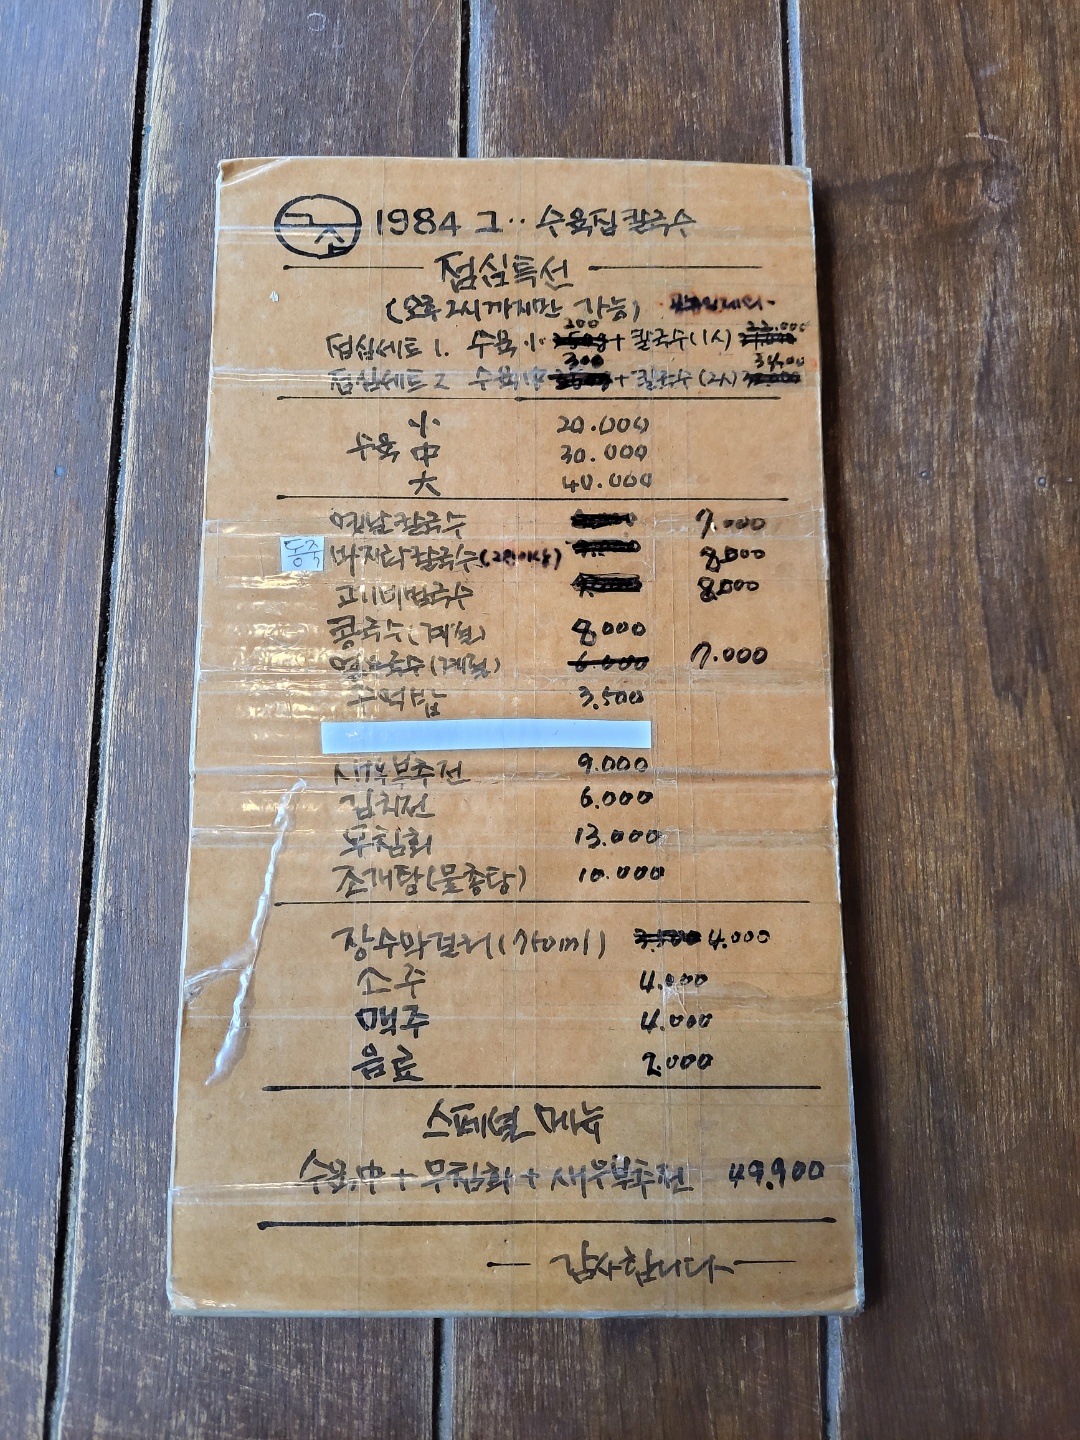 1984 그·· 수육집칼국수
점심특선
(오후 2시까지만 가능)
점심세트 1. 수육 小 200 + 칼국수 (1人) 22.000
점심세트 2. 수육 中 300 + 칼국수 (2人) 34.00
수육
小 20.000
中 30.000
大 40.000
옛날칼국수 7.000
동죽 바지락칼국수 8.000
고기비빔국수 8.000
콩국수(계절) 8.000
열무국수(계절) 6.000 7.000
주먹밥 3.500
새우부추전 9.000
김치전 6.000
무침회 13.000
조개탕(물총탕) 10.000
장수막걸리 3.500 4.000
소주 4.000
맥주 4.000
음료 2.000
스페셜 메뉴
수육中 + 무침회 + 새우부추전 49.900
감사합니다